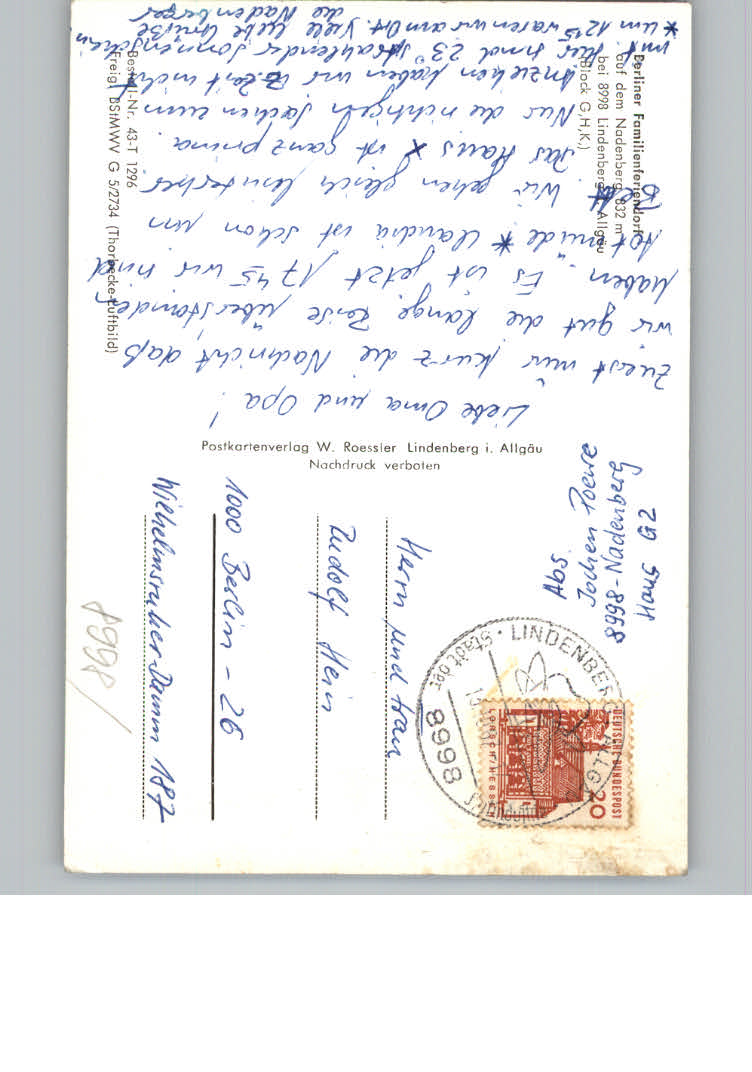 Berliner Familienferiendorf
auf dem Nadenberg 832 m
bei 8998 Lindenberg i. Allgäu
(Block G,H,K,)
Bestell-Nr. 43-T 1296
Freig. BStMWV G 5/2734 (Thorbecke-Luftbild)
Postkartenverlag W. Roessler Lindenberg i. Allgäu
Nachdruck verboten
Liebe Oma und Opa!
Zuerst nur kurz die Nachricht, daß
wir gut die lange Reise überstanden
haben. Es ist jetzt 17 45 wir sind
tot müde * Claudia ist schon im
Bett. Wir gehen gleich hinterher
Das Haus x ist ganz prima.
Nur die richtigen Sachen zum
Anziehen haben wir z. Zeit nicht
mit. Hier sind 23° strahlender Sonnenschein
* um 12 15 waren wir am Ort. Viele liebe Grüße
die Nadenberger
Abs.
Jochen
8998-Nadenberg
Haus G2
Herrn und Frau
Rudolf Hein
1000 Berlin - 26
Wilhelmsruher Damm 187
8998/
8998 LINDENBERG · ALLGÄU
Stadt der
DEUTSCHE BUNDESPOST
20
LORSCH/HESSEN